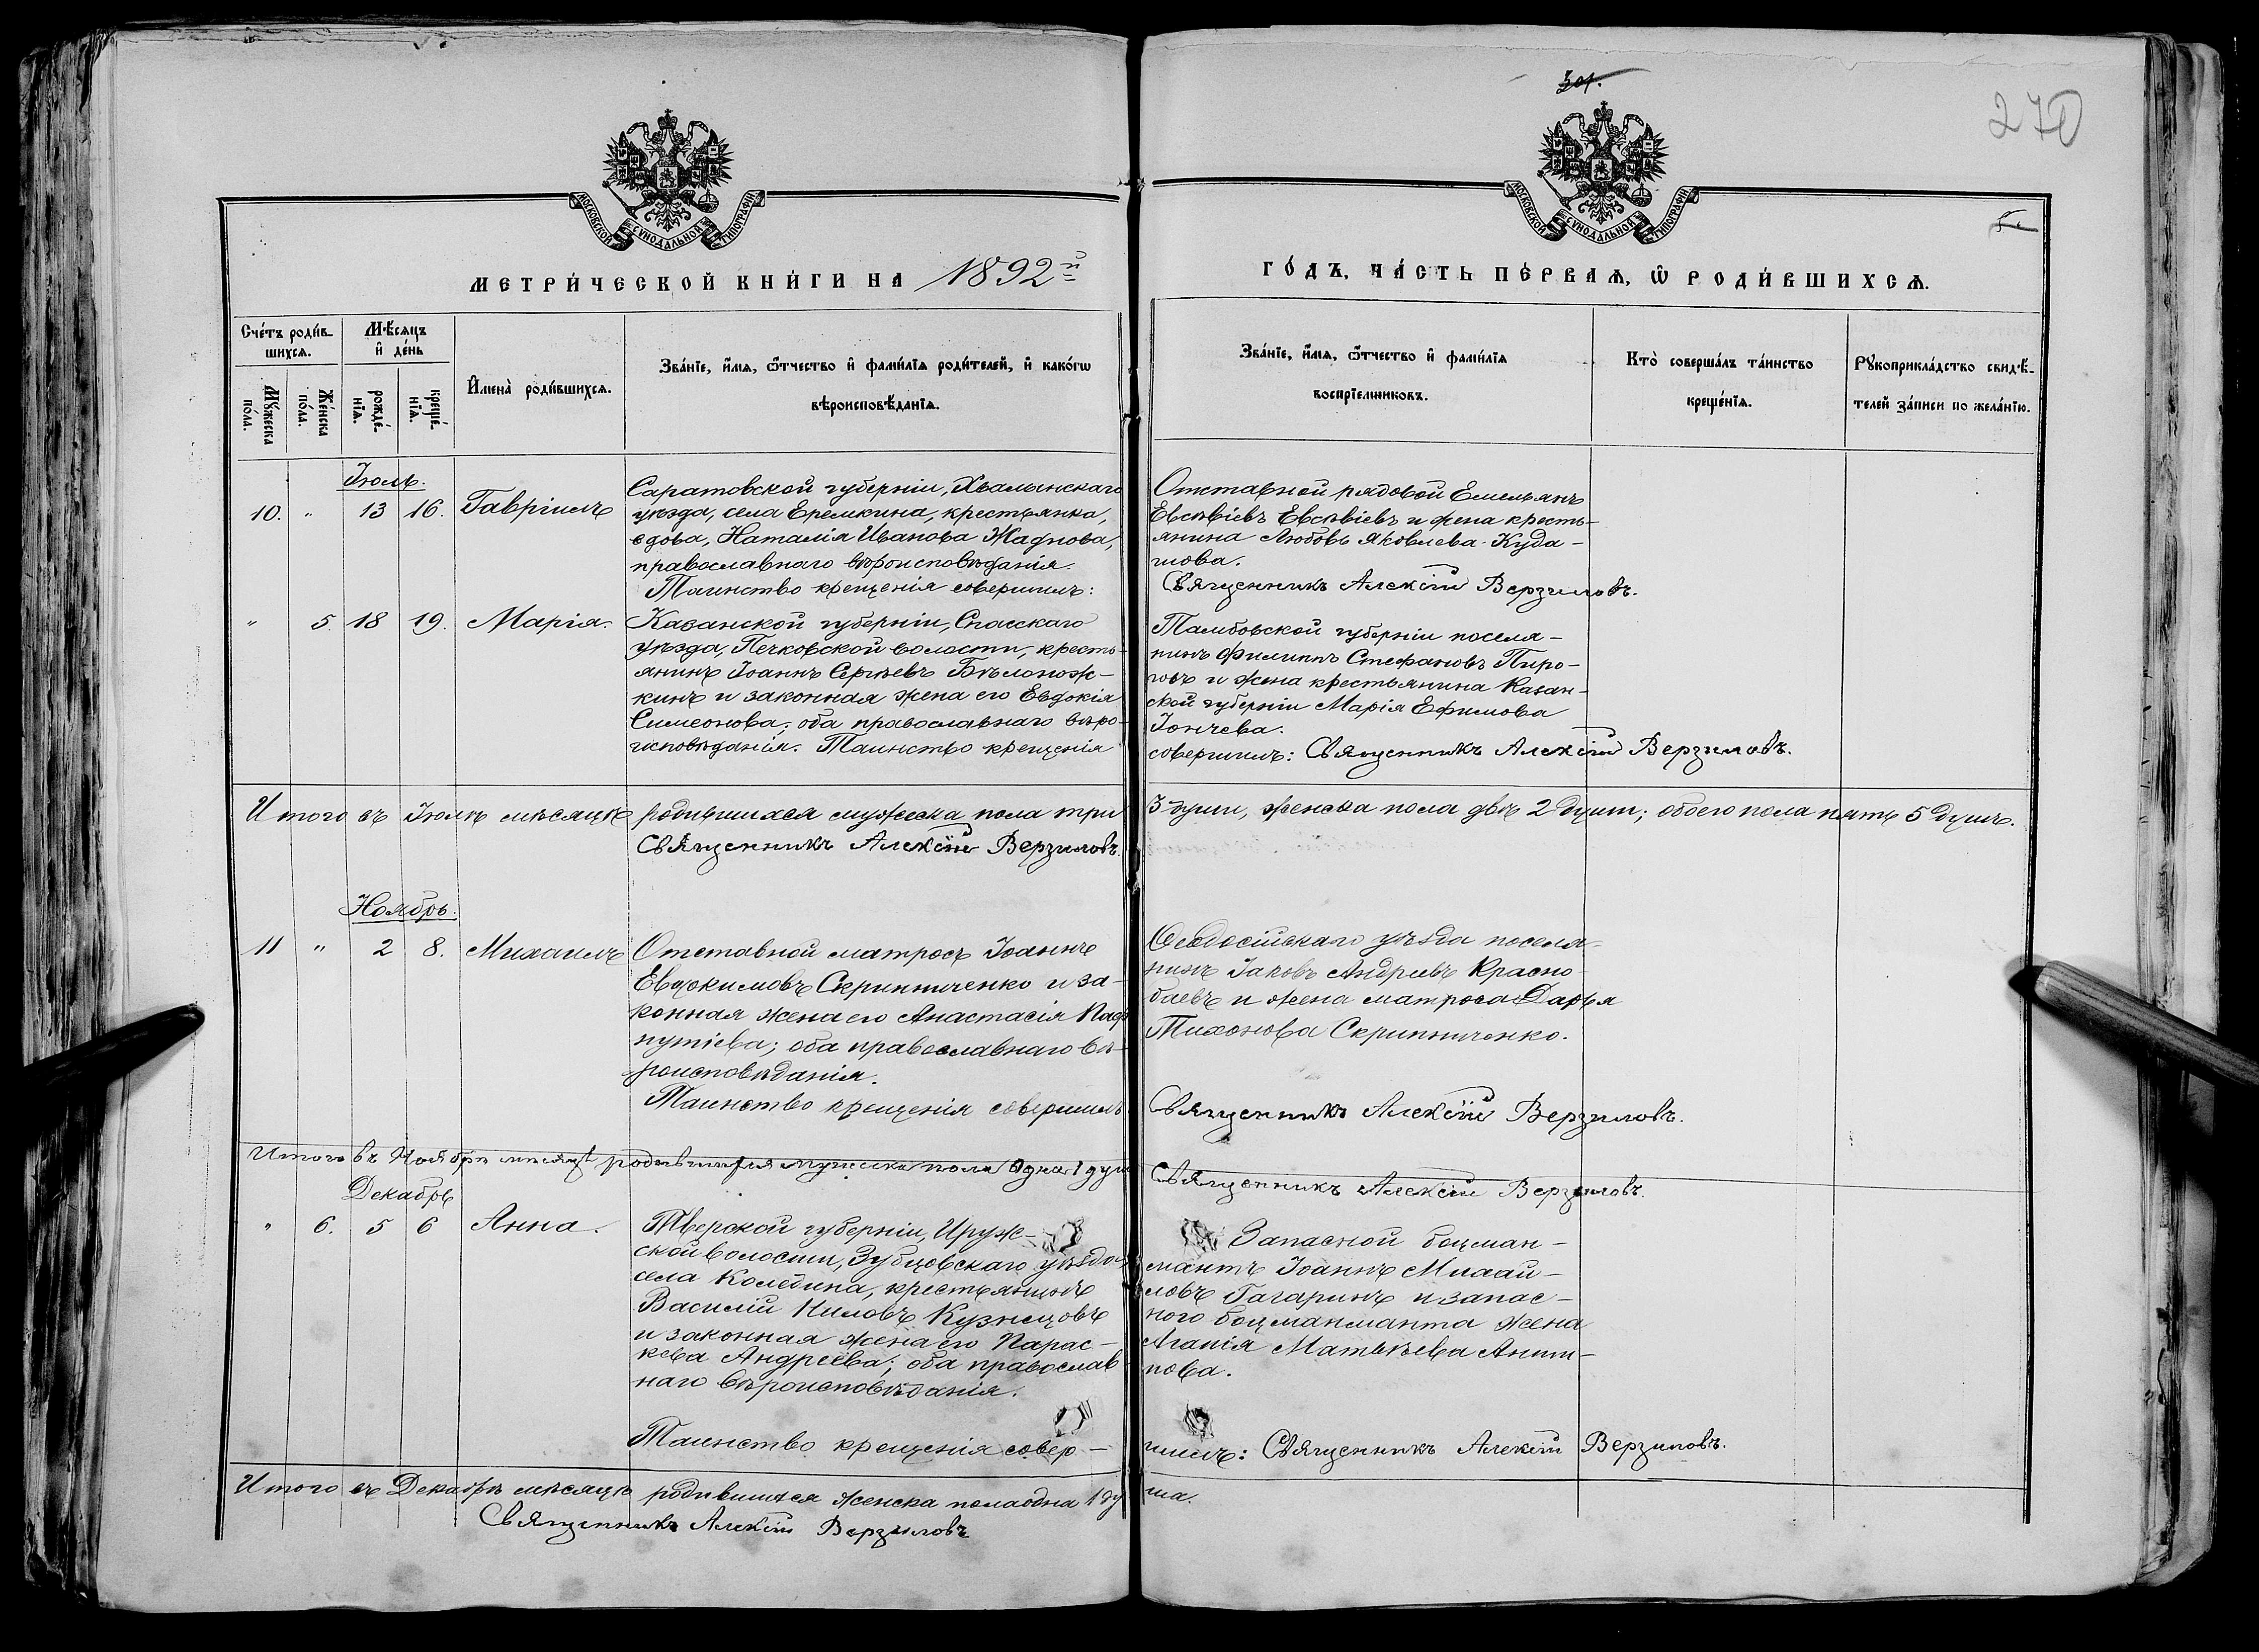 301.
270
5
МОСКОВСКОЙ СѴНОДАЛЬНОЙ ТИПОГРАФІИ
МОСКОВСКОЙ СѴНОДАЛЬНОЙ ТИПОГРАФІИ
МЕТРИ́ЧЕСКОЙ КНИ́ГИ НА 1892й
ГО́ДЪ, ЧА́СТЬ ПЕ́РВАѦ, Ѡ РОДИ́ВШИХСѦ.
Сче́тъ роди́в-
шихсѧ.
Мѣ́сѧцъ
и҆ де́нь
Мꙋ́жеска
по́ла.
Же́нска
по́ла.
рожде́-
нїѧ.
креще́-
нїѧ.
И҆мена̀ роди́вшихсѧ.
Зва́нїе, и҆́мѧ, ѻ҆́тчество и҆ фами́лїѧ роди́телей, и҆ како́гѡ
вѣроисповѣ́данїѧ.
Зва́нїе, и҆́мѧ, ѻ҆́тчество и҆ фами́лїѧ
воспрїе́мниковъ.
Кто̀ соверша́лъ та́инство
креще́нїѧ.
Рꙋкоприкла́дство свидѣ́-
телей за́писи по жела́нїю.
Іюль.
10. " 13 16. Гавріилъ
Саратовской губерніи, Хвалынскаго
уѣзда, села Еремкина, крестьянка,
вдова, Наталія Иванова Жаднова,
православнаго вѣроисповѣданія.
Таинство крещенія совершилъ:
Отставной рядовой Емельянъ
Евсѣвіевъ Евсѣвіевъ и жена кресть-
янина Любовь Яковлева Куда-
шова.
Священникъ Алексій Верзиловъ.
" 5. 18 19. Марія.
Казанской губерніи, Спасскаго
уѣзда, Печковской волости, кресть-
янинъ Іоаннъ Сергѣевъ Бѣлонож-
кинъ и законная жена его Евдокія
Симеонова; оба православнаго вѣро-
исповѣданія. Таинство крещенія
Тамбовской губерніи поселя-
нинъ Филиппъ Стефановъ Пиро-
говъ и жена крестьянина Казан-
ской губерніи Марія Ефимова
Іончева.
совершилъ: Священникъ Алексій Верзиловъ.
Итого въ Іюлѣ мѣсяцѣ родившихся мужеска пола три 3 души, женска пола двѣ 2 души; обоего пола пять 5 душъ.
Священникъ Алексій Верзиловъ.
Ноябрь.
11 " 2 8. Михаилъ
Отставной матросъ Іоаннъ
Евдокимовъ Скрипниченко и за-
конная жена его Анастасія Паф-
нутіева; оба православнаго вѣ-
роисповѣданія.
Таинство крещенія совершилъ
Ѳеодосійскаго уѣзда поселя-
нинъ Іаковъ Андреевъ Красно-
баевъ и жена матроса Дарья
Тихонова Скрипниченко.
Священникъ Алексій Верзиловъ.
Итого въ Ноябрѣ мѣсяцѣ родившихся мужеска пола Одна 1 душ
Священникъ Алексій Верзиловъ.
Декабрь
" 6. 5 6 Анна.
Тверской губерніи, Ируж-
ской волости, Зубцовскаго уѣзда,
села Коледина, крестьянинъ
Василій Ниловъ Кузнецовъ
и законная жена его Парас-
кева Андреева; оба православ-
наго вѣроисповѣданія.
Таинство крещенія совер-
Запасной боцман-
мантъ Іоаннъ Михай-
ловъ Гагаринъ и запас-
ного боцманманта жена
Агапія Матвѣева Анти-
пова.
шилъ: Священникъ Алексій Верзиловъ.
Итого въ Декабрѣ мѣсяцѣ родившихся женска пола одна 1 ду ша.
Священникъ Алексій Верзиловъ